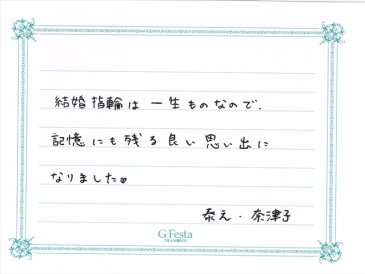 結婚指輪は一生ものなので、
記憶にも残る良い思い出に
なりました♥
泰え・奈津子
G.Festa